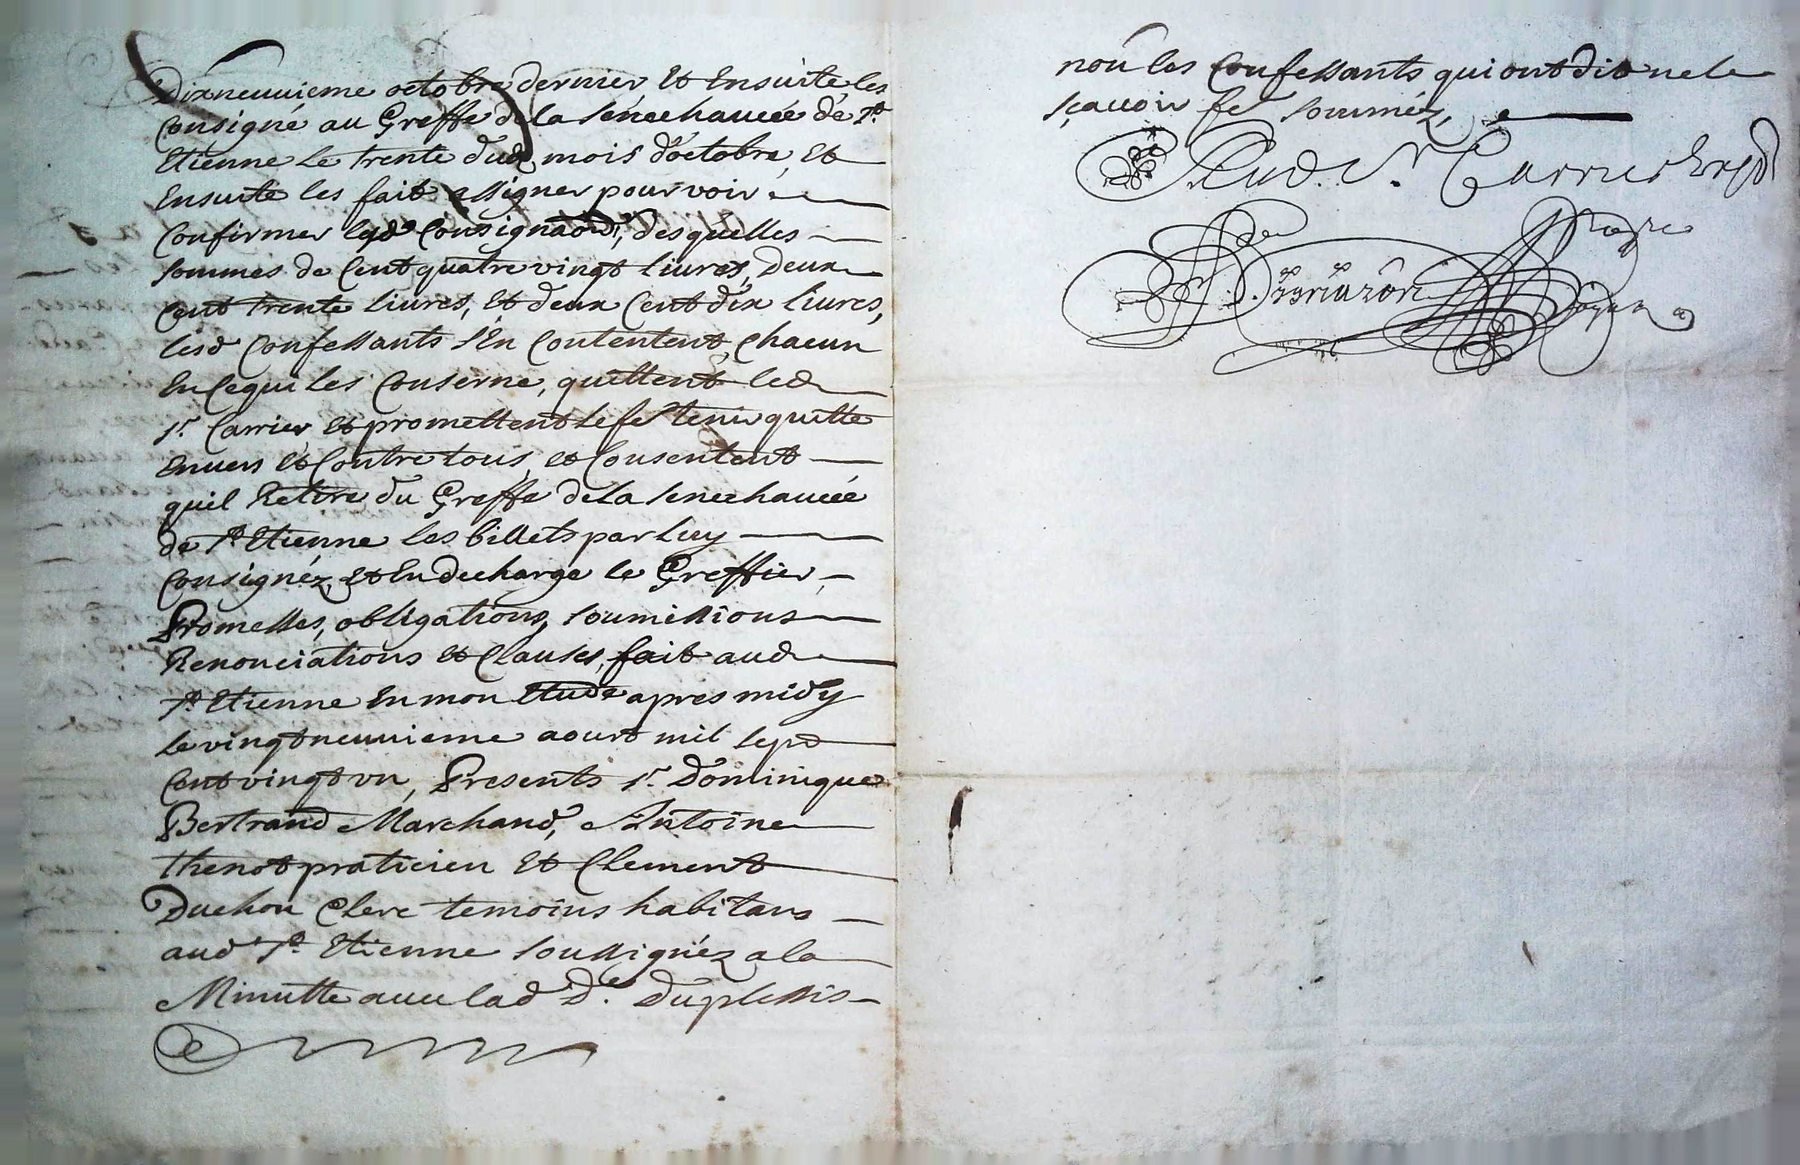 Dixneuuieme octobre dernier et Ensuite les
Consigné au Greffe de la senechaucée de St
Etienne le trente dud mois d'octobre, et
Ensuite les fait assigner pour voir
Confirmer lesd Consignaons, desquelles
sommes de Cent quatre vingt liures, deux
Cent trente liures, et deux Cent dix liures,
lesd Confessants s'En Contentent, chacun
En ce qui les Conserne, quittent led
sr. Carrier et promettent le fe tenir quitte
Enuers et Contre tous, et Consentent
quil Retire du Greffe de la senechaucée
de St Etienne les billets par luy
Consignéz, et En decharge le Greffier,
Promesses, obligations, soumissions
Renonciations et Clauses, fait aud
St Etienne En mon Etude apres midy
le vingt neuuieme aoust mil sept
Cent vingt vn, Presents sr. Dominique
Bertrand Marchand, Antoine
thenot praticien et Clement
Duchon Clerc temoins habitans
aud St. Etienne soussignéz a la
Minutte auec lad De. Duplessis
non les Confessants qui ont dit ne le
sçauoir fe somméz,
Aud. Sr Carrier Exp